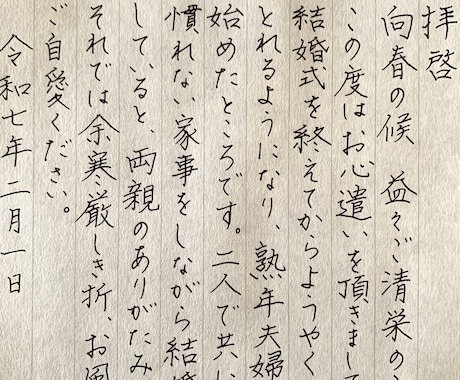 拝啓
向春の候　益々ご清栄の
この度はお心遣いを頂きまして
結婚式を終えてからようやく
とれるようになり、熟年夫婦
始めたところです。二人で共に
慣れない家事をしながら結婚
していると、両親のありがたみ
それでは余寒厳しき折、お風
ご自愛ください。
令和七年二月一日